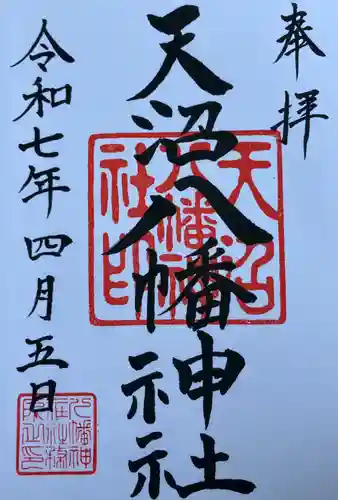 奉拝
天沼八幡神社
令和七年四月五日
天沼八幡神社印